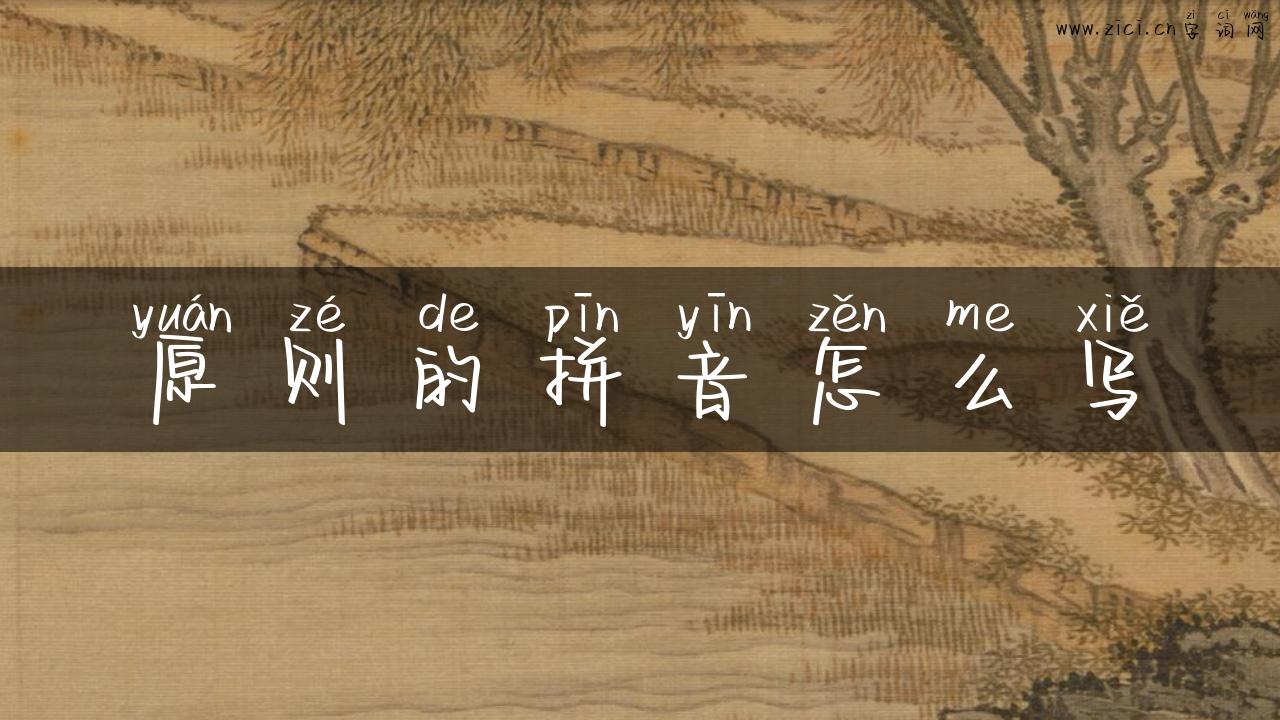 zì cí wǎng
www.zici.cn字词网
yuán zé de pīn yīn zěn me xiě
原则的拼音怎么写